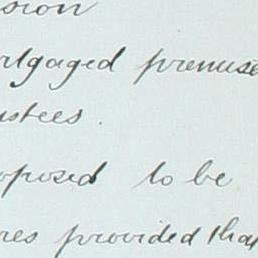 sion
rtgaged premise
ustees.
oposed to be
res provided that